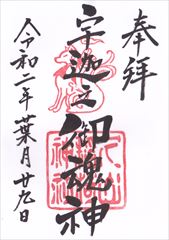 奉拝
宇迦之御魂神
令和二年葉月廿九日